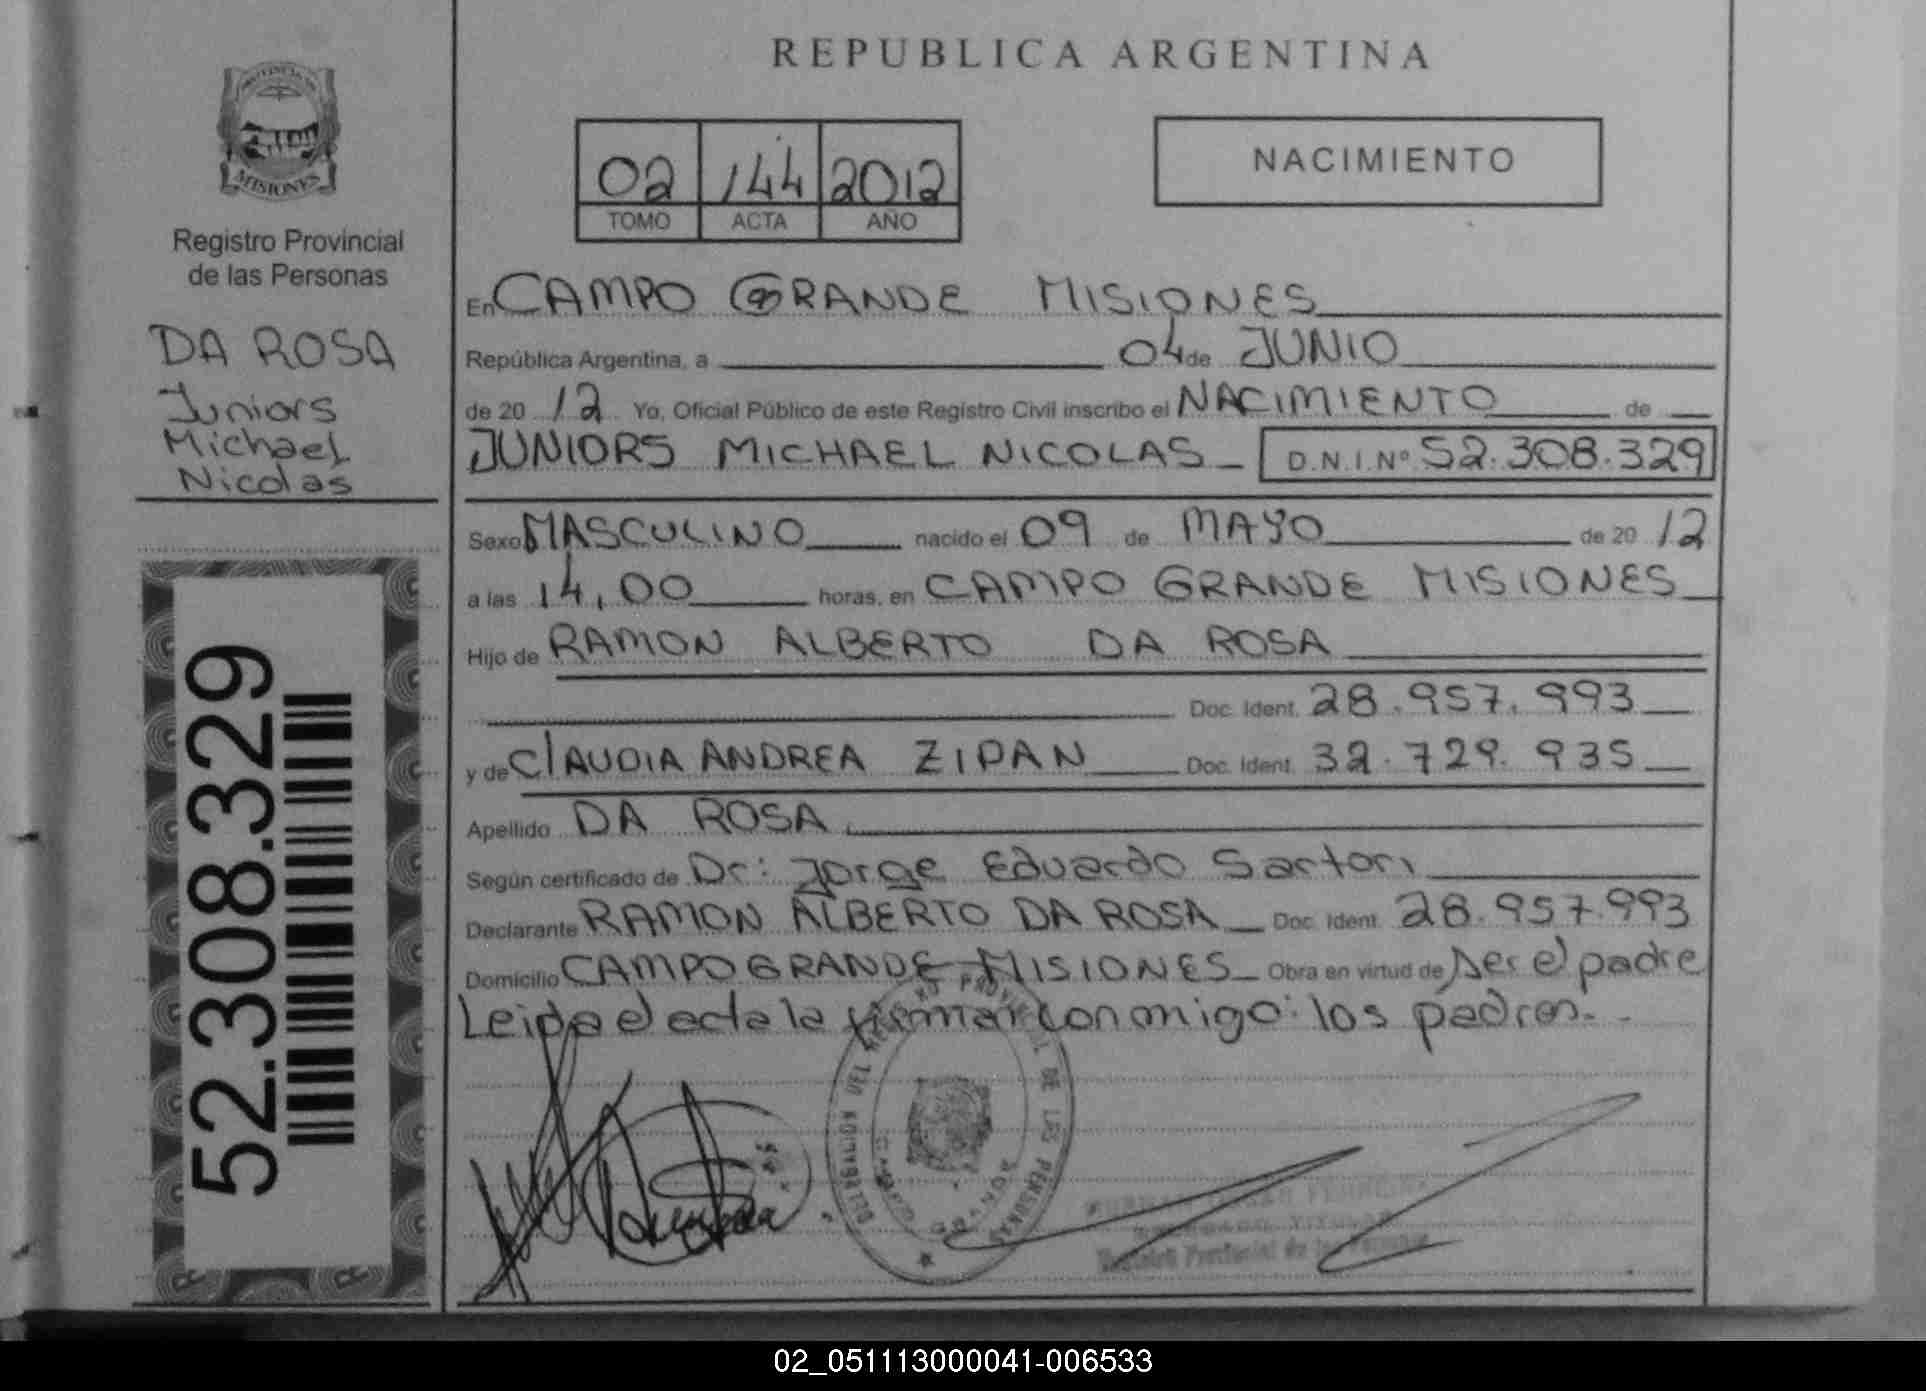 REPUBLICA ARGENTINA
MISIONES
Registro Provincial
de las Personas
DA ROSA
Juniors
Michael
Nicolas
52.308.329
02 144 2012
TOMO ACTA AÑO
NACIMIENTO
En CAMPO GRANDE MISIONES
República Argentina, a 04 de JUNIO
de 20 12 Yo, Oficial Público de este Registro Civil inscribo el NACIMIENTO de
JUNIORS MICHAEL NICOLAS D.N.I.Nº 52.308.329
Sexo MASCULINO nacido el 09 de MAYO de 20 12
a las 14,00 horas, en CAMPO GRANDE MISIONES
Hijo de RAMON ALBERTO DA ROSA
Doc. Ident. 28.957.993
y de ClAUDIA ANDREA ZIPAN Doc. Ident. 32.729.935
Apellido DA ROSA
Según certificado de Dr: Jorge Eduardo Sartori
Declarante RAMON ALBERTO DA ROSA Doc. Ident. 28.957.993
Domicilio CAMPO GRANDE MISIONES Obra en virtud de ser el padre
Leida el acta la firman conmigo: los padres.
FERREIRA
Registro Provincial de las Personas
02_051113000041-006533